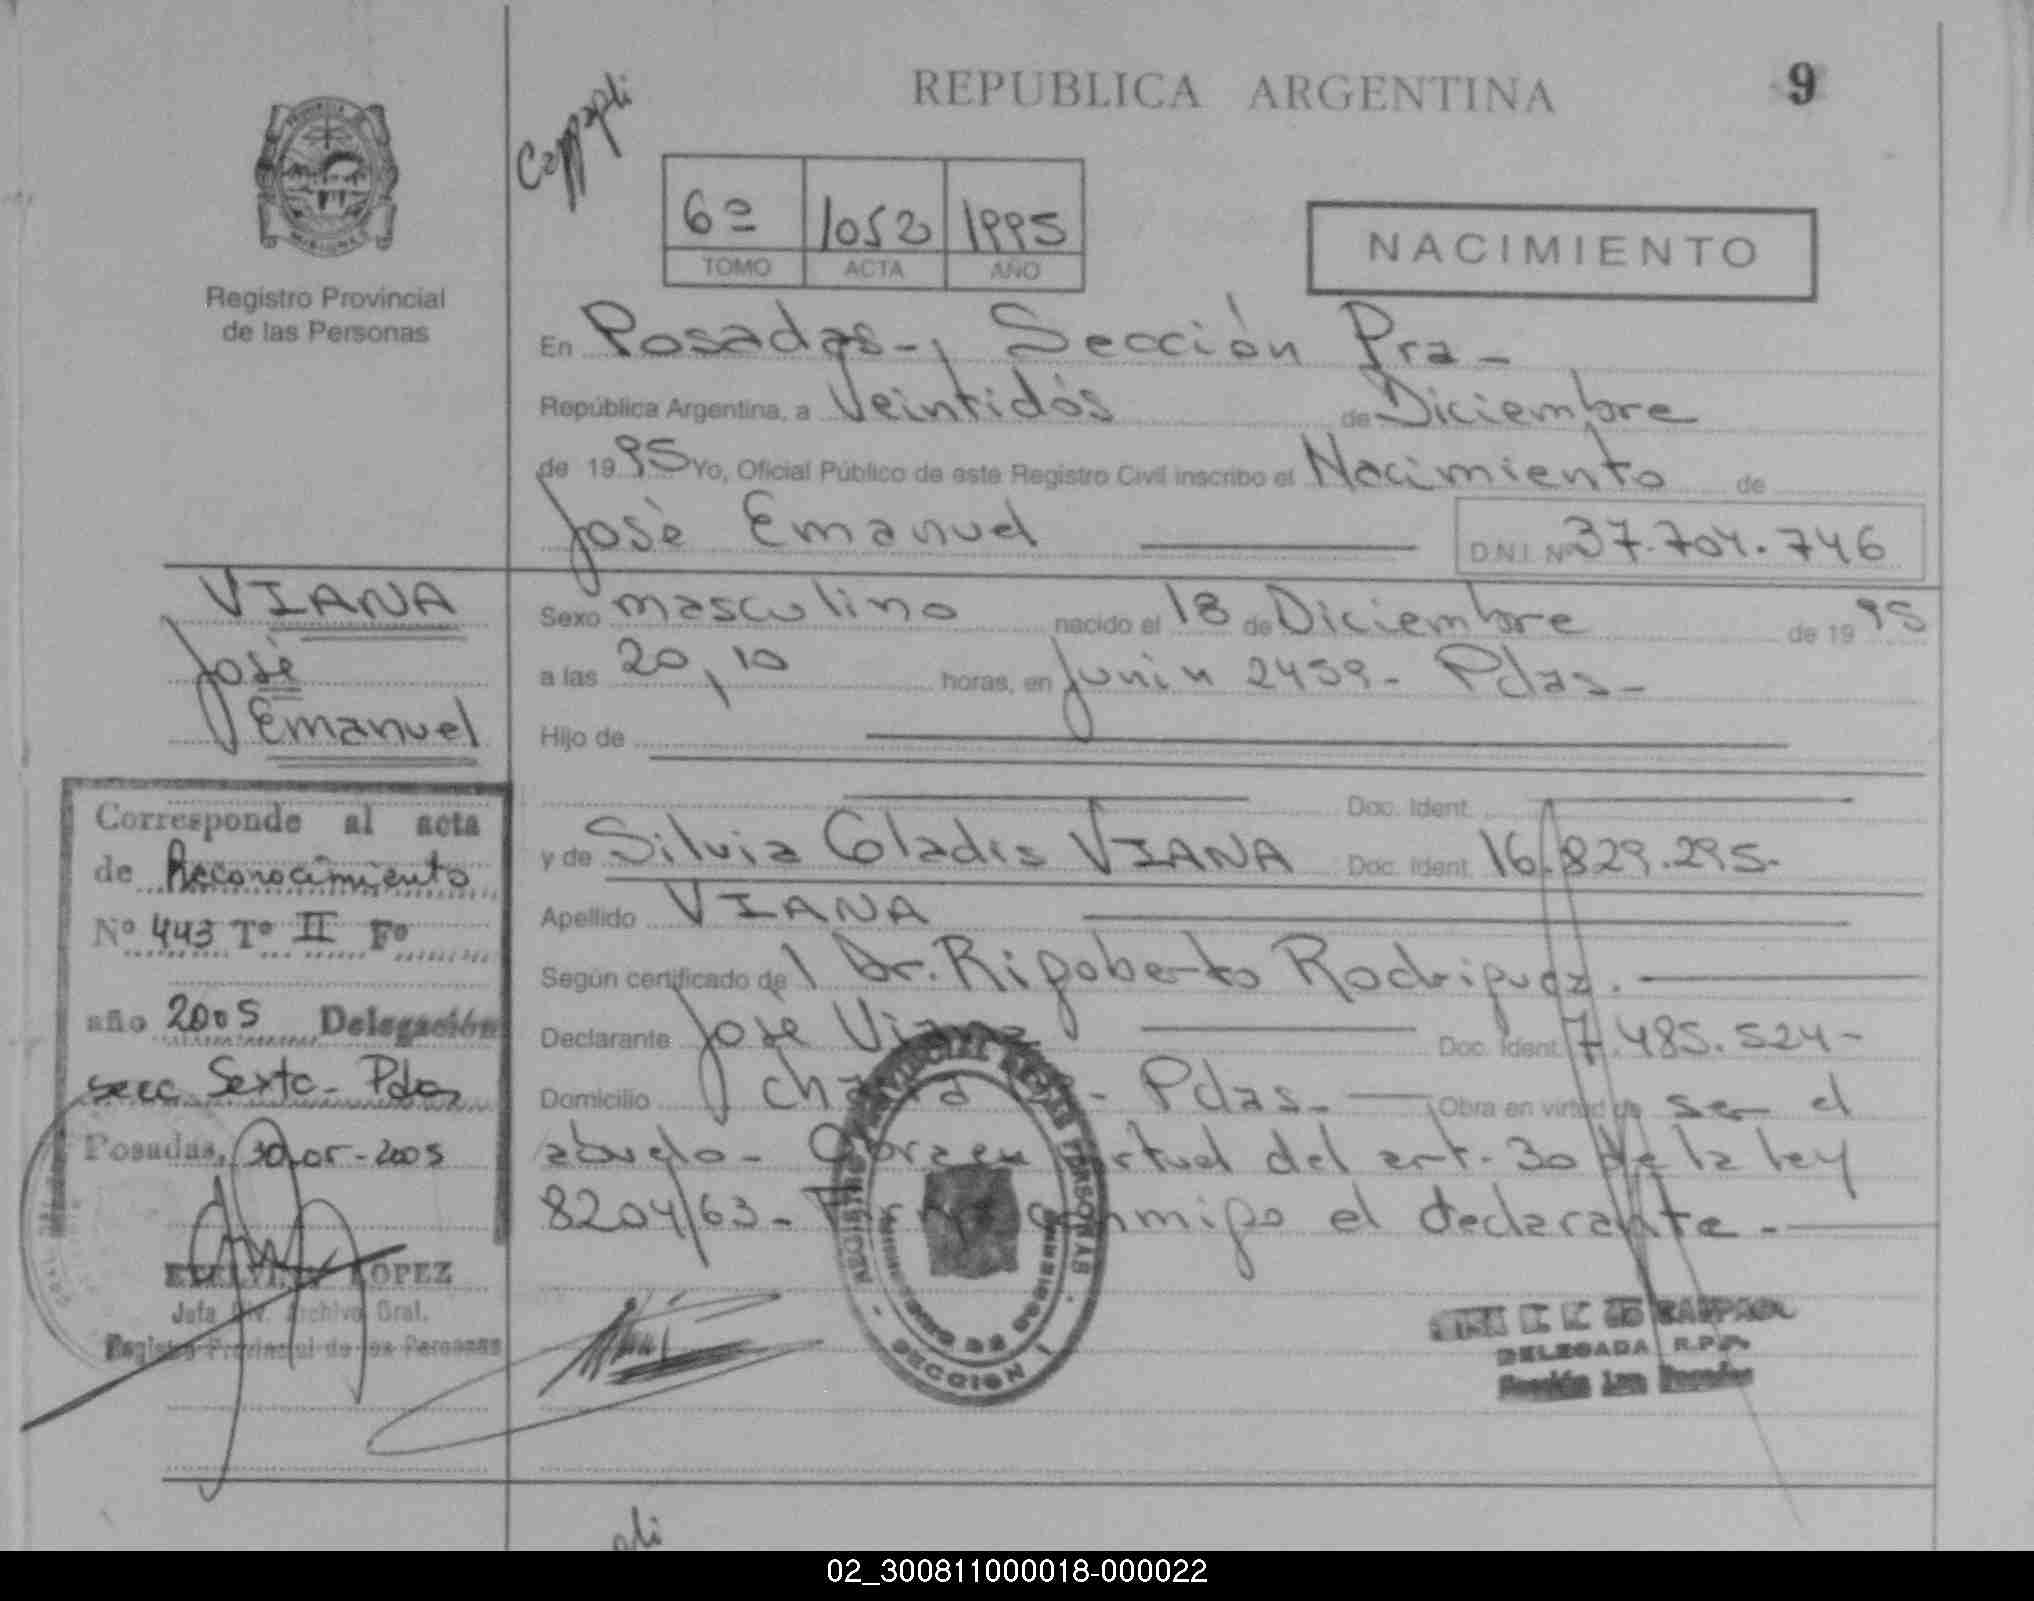 REPUBLICA ARGENTINA
9
6º 1052 1995
TOMO ACTA AÑO
NACIMIENTO
PROVINCIA
MISIONES
Registro Provincial
de las Personas
En Posadas-, Sección Pra-
República Argentina, a Veintidós de Diciembre
de 1995 Yo, Oficial Público de este Registro Civil inscribo el Nacimiento de
Josè Emanuel D.N.I. Nº 37.704.746
VIANA
José
Emanuel
Sexo masculino nacido el 18 de Diciembre de 1995
a las 20,10 horas, en Junin 2459- Pdas-
Hijo de
Doc. Ident.
y de Silvia Gladis VIANA Doc. Ident. 16.829.295.
Apellido VIANA
Según certificado de l Dr. Rigoberto Rodriguez.
Declarante José Viana Doc. Ident. 7.485.524-
Domicilio - Pdas- Obra en virtud de ser el
abuelo- Obra en virtud del art. 30 de la ley
8204/63- conmigo el declarante-
Corresponde al acta
de Reconocimiento
Nº 443 Tº II Fº
año 2005 Delegación
secc Sexta- Pdas
Posadas, 30-05-2005
LOPEZ
Jefa Div. Archivo Gral.
Registro Provincial de las Personas
SECCION 1
DELEGADA R.P.P.
02_300811000018-000022